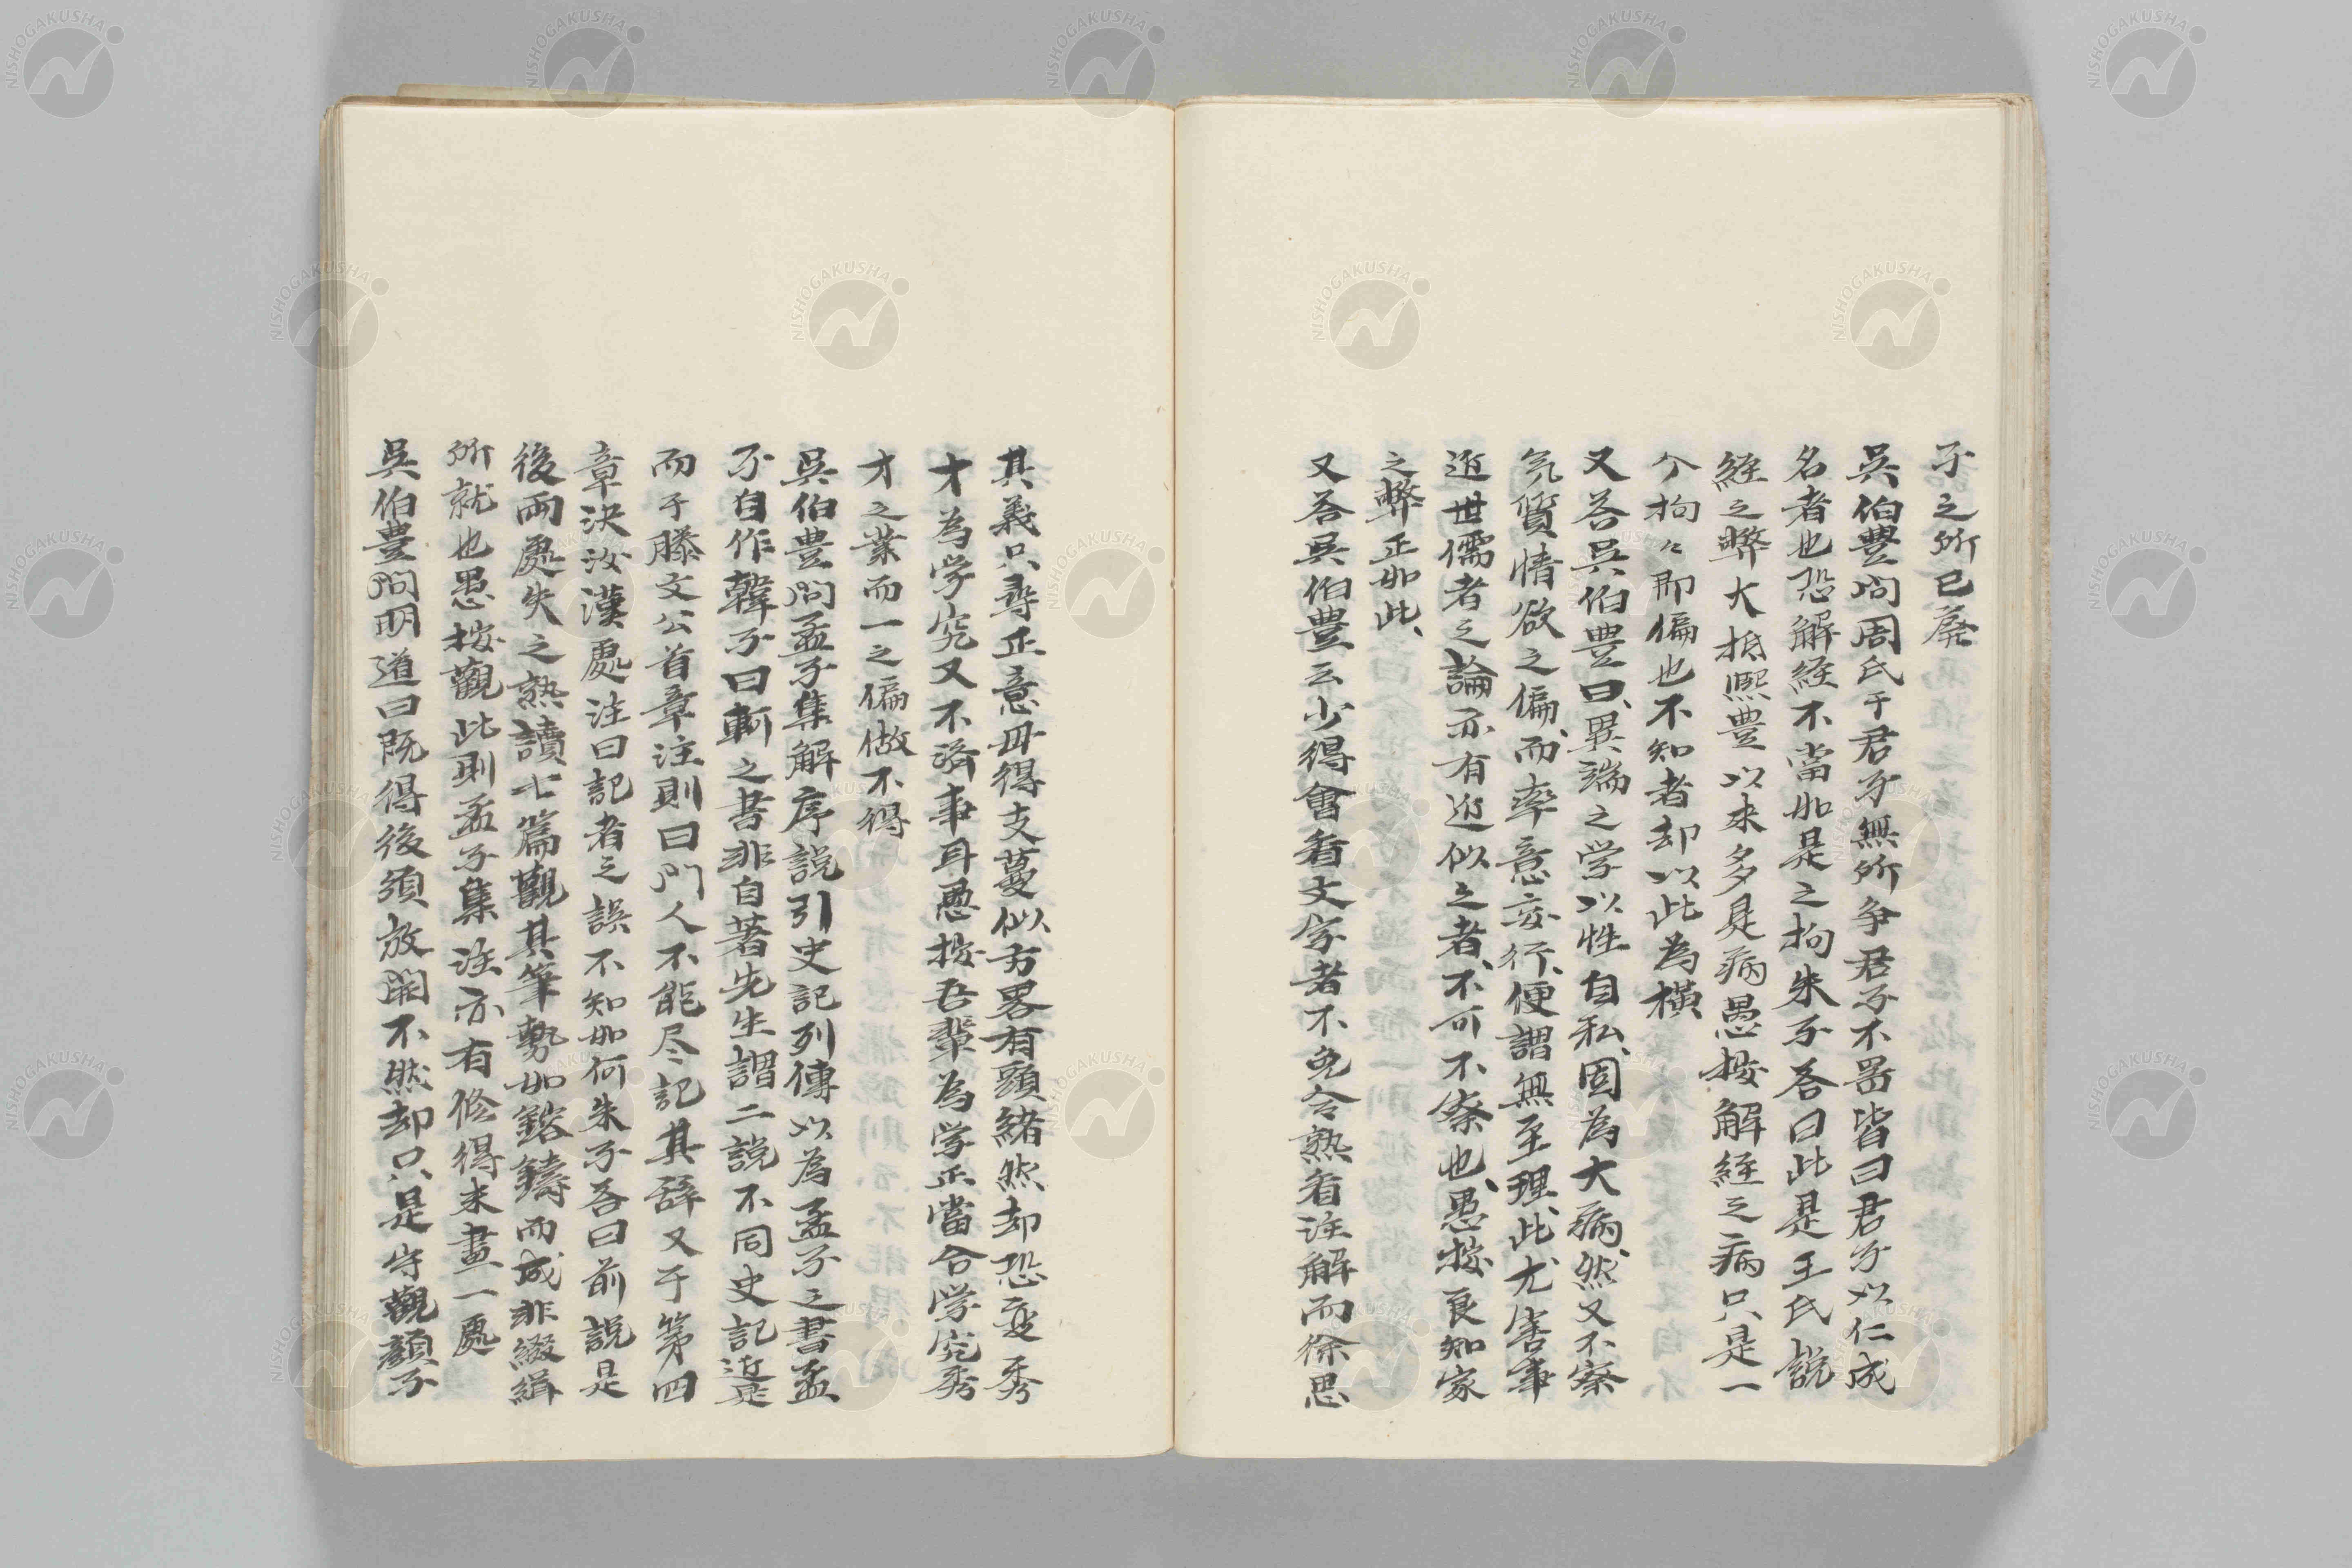 子之所已廃
呉伯豊問周氏于君子無所争君子不器皆曰君子以仁成
名者也恐解経不當如是之拘朱子答曰此是王氏説
経之弊大抵熙豊以来多是病愚按解経之病只是一
个拘々即偏也不知者却以此為横
又答呉伯豊曰、異端之学以性自私、固為大病、然又不察
気質情欲之偏、而率意妄行、便謂無至理、此尤害事
近世儒者之論亦有近似之者、不可不察也、愚按良知家
之弊正如此、
又答呉伯豊云少得會看文字者不免令熟看注解而徐思
其義只尋正意毋得支蔓似方畧有頭緒然却恐変秀
才為学究又不済事耳愚按吾輩為学正當合学究秀
才之業而一之偏做不得
呉伯豊問孟子集解序説引史記列傳以為孟子之書孟
子自作韓子曰軻之書非自著先生謂二説不同史記近是
而于滕文公首章注則曰門人不能尽記其辞又于第四
章決汝漢處注曰記者之誤不知如何朱子答曰前説是
後兩處失之熟讀七篇觀其筆勢如鎔鑄而成非綴緝
所就也愚按觀此則孟子集注亦有修得未盡一處
呉伯豊問明道曰既得後須放開不然却只是守觀顔子
NISHOGAKUSHA